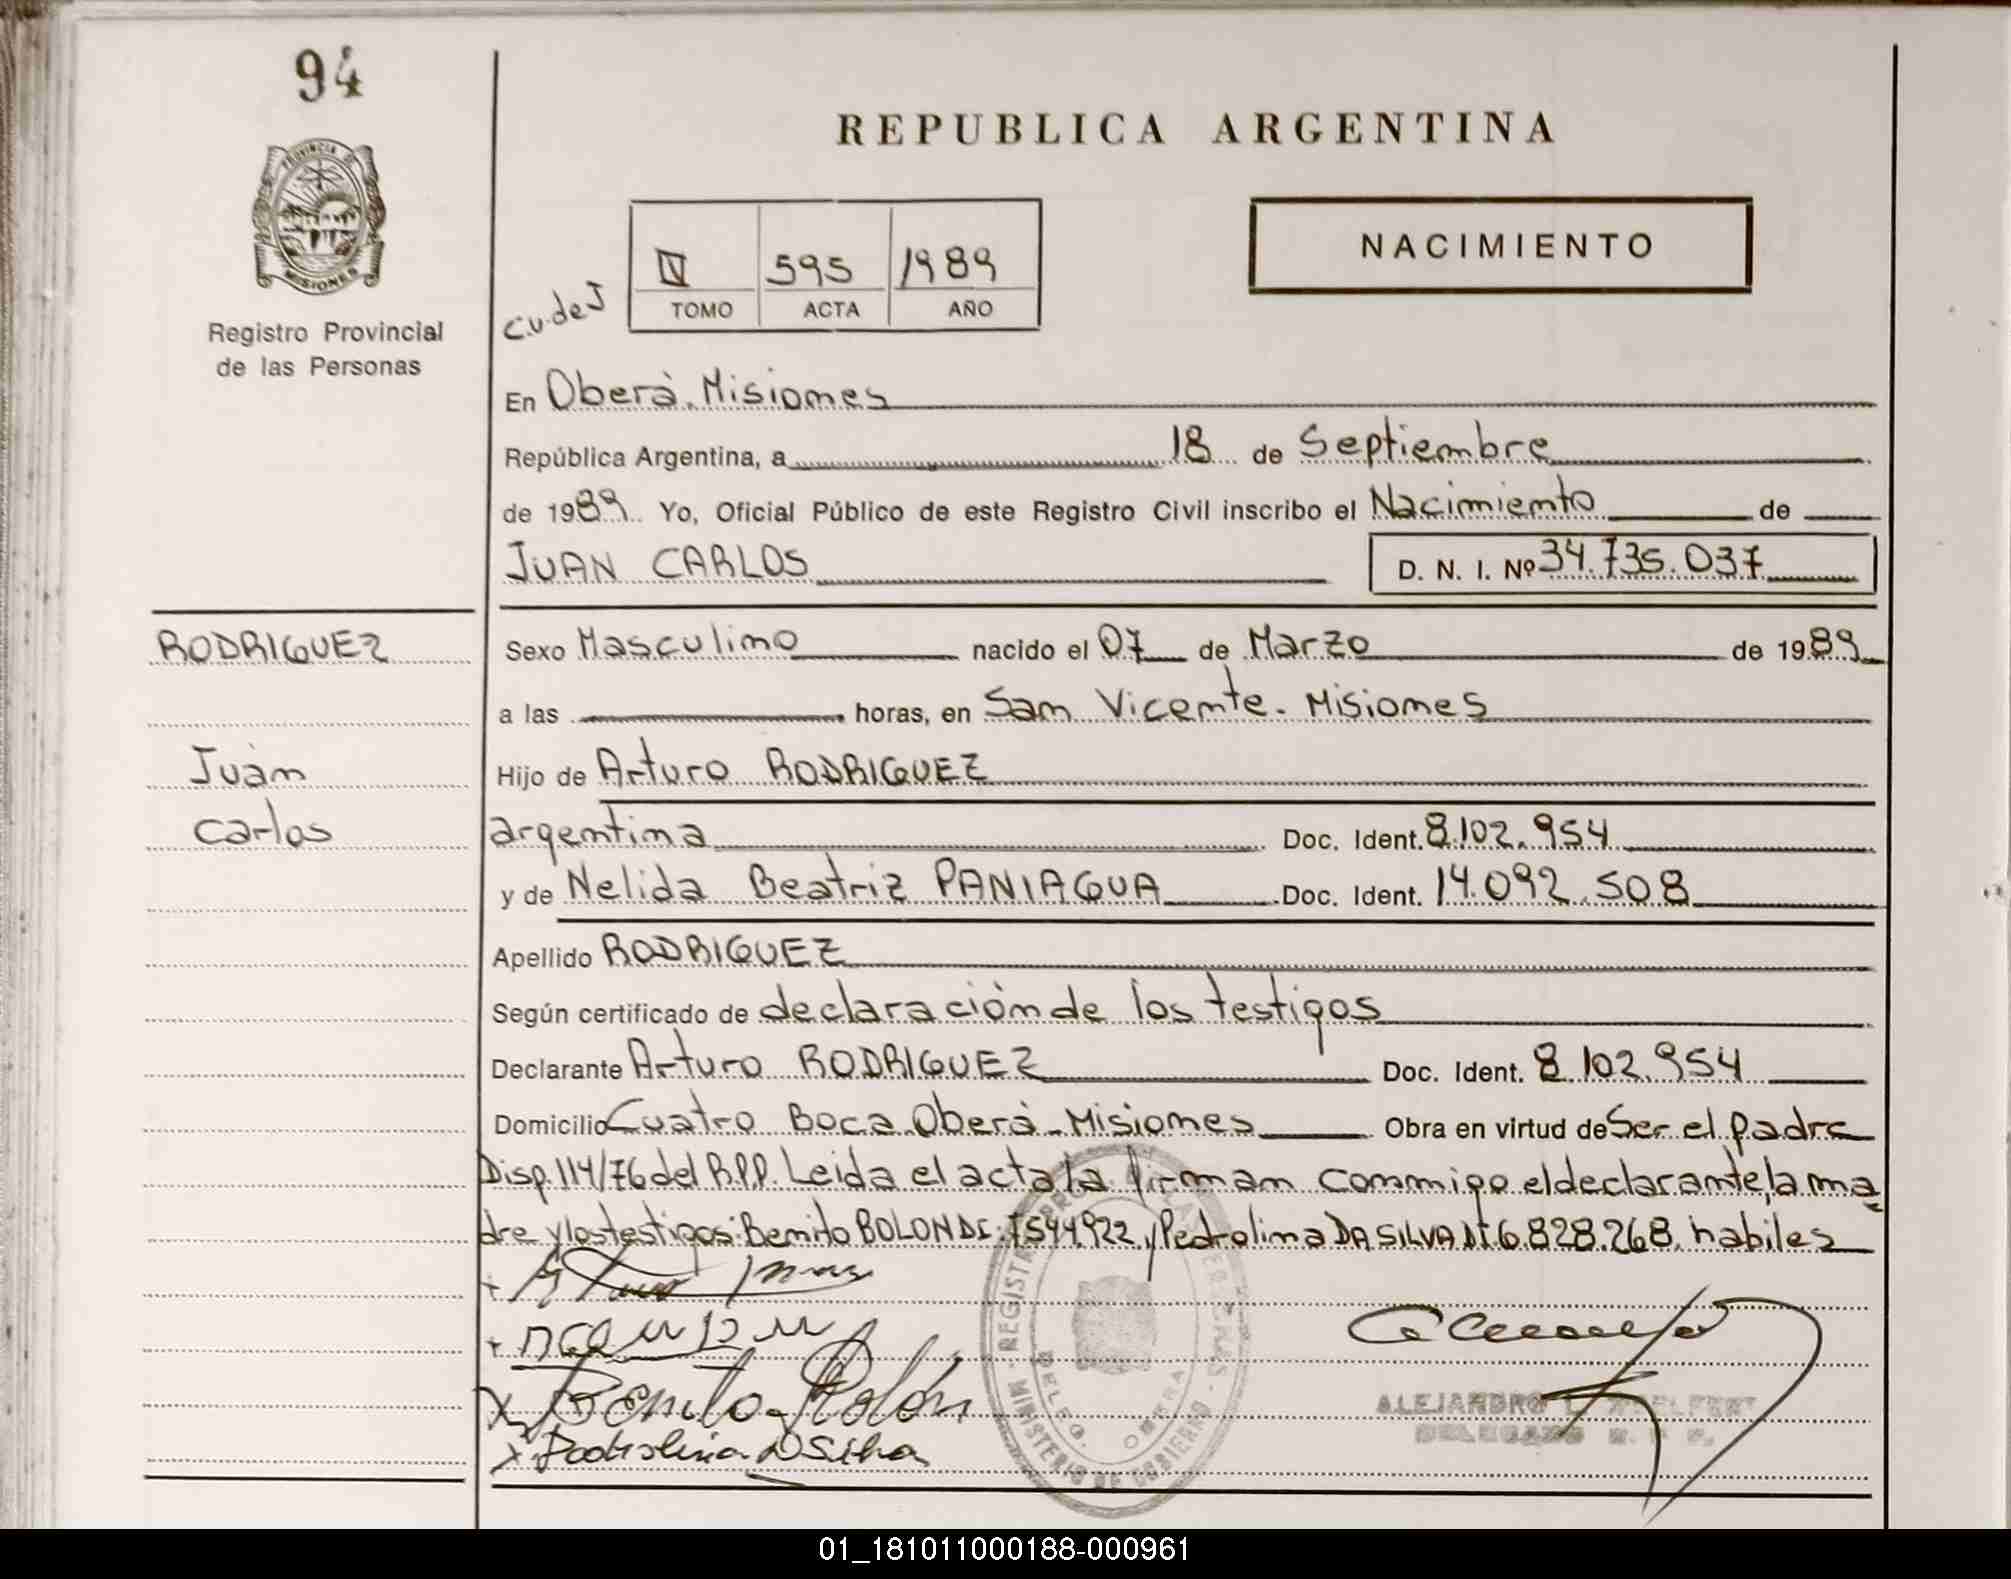 94
PROVINCIA DE
MISIONES
Registro Provincial
de las Personas
REPUBLICA ARGENTINA
NACIMIENTO
C.U. de J
IV 595 1989
TOMO ACTA AÑO
En Oberá. Misiones
República Argentina, a 18 de Septiembre
de 1989 Yo, Oficial Público de este Registro Civil inscribo el Nacimiento de
JUAN CARLOS D. N. I. Nº 34.735.037
RODRIGUEZ
Juan
Carlos
Sexo Masculino nacido el 07 de Marzo de 1989
a las horas, en San Vicente. Misiones
Hijo de Arturo RODRIGUEZ
argentina Doc. Ident. 8.102.954
y de Nelida Beatriz PANIAGUA Doc. Ident. 14.092.508
Apellido RODRIGUEZ
Según certificado de declaración de los testigos
Declarante Arturo RODRIGUEZ Doc. Ident. 8.102.954
Domicilio Cuatro Boca Oberá - Misiones Obra en virtud de Ser el padre
Disp. 114/76 del R.P.P. Leida el acta la firman conmigo el declarante, la ma
dre y los testigos: Benito ROLON DI: 7544.922 y Pedrolina DA SILVA DI 6.828.268. habiles
Benito Rolón
Pedrolina D Silva
MINISTERIO DE GOBIERNO
DELEG. OBERA
ALEJANDRO
DELEGADO R. P. P.
01_181011000188-000961